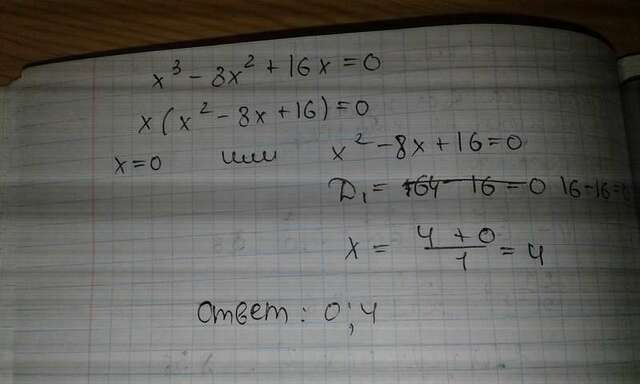 x³ - 8x² + 16x = 0
x(x² - 8x + 16) = 0
x = 0 или x² - 8x + 16 = 0
D₁ = 16 - 16 = 0
x = (4 + 0)/1 = 4
Ответ: 0; 4